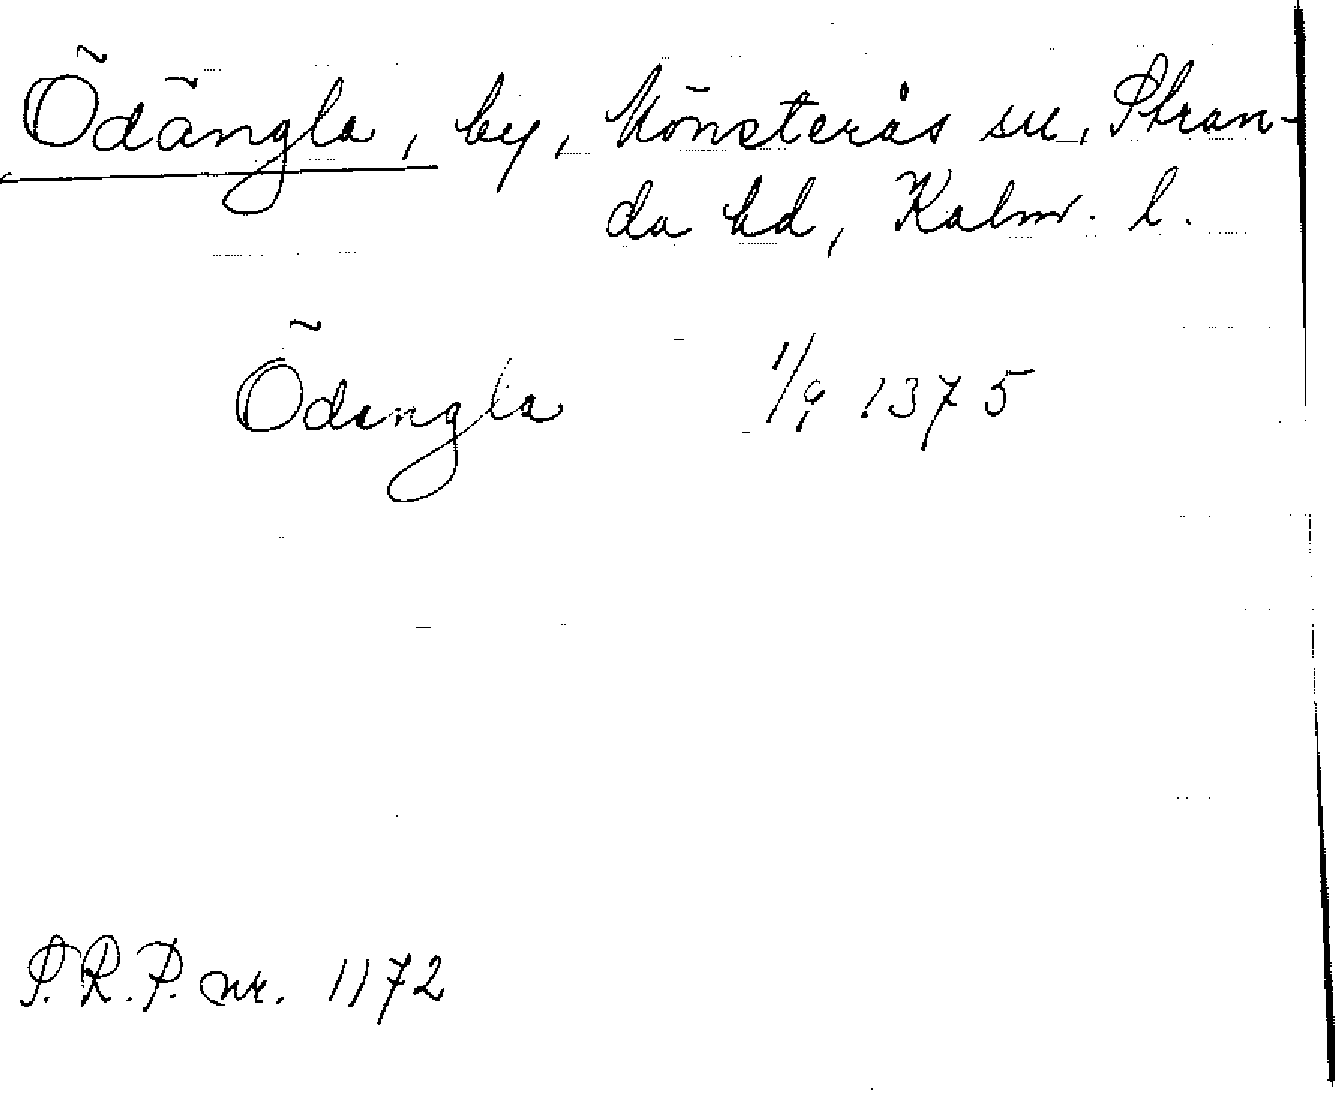 Ödängla, by, Mönsterås sn, Stran-
da hd, Kalm. l.
Ödængla 1/9 1375
S.R.P. nr. 1172